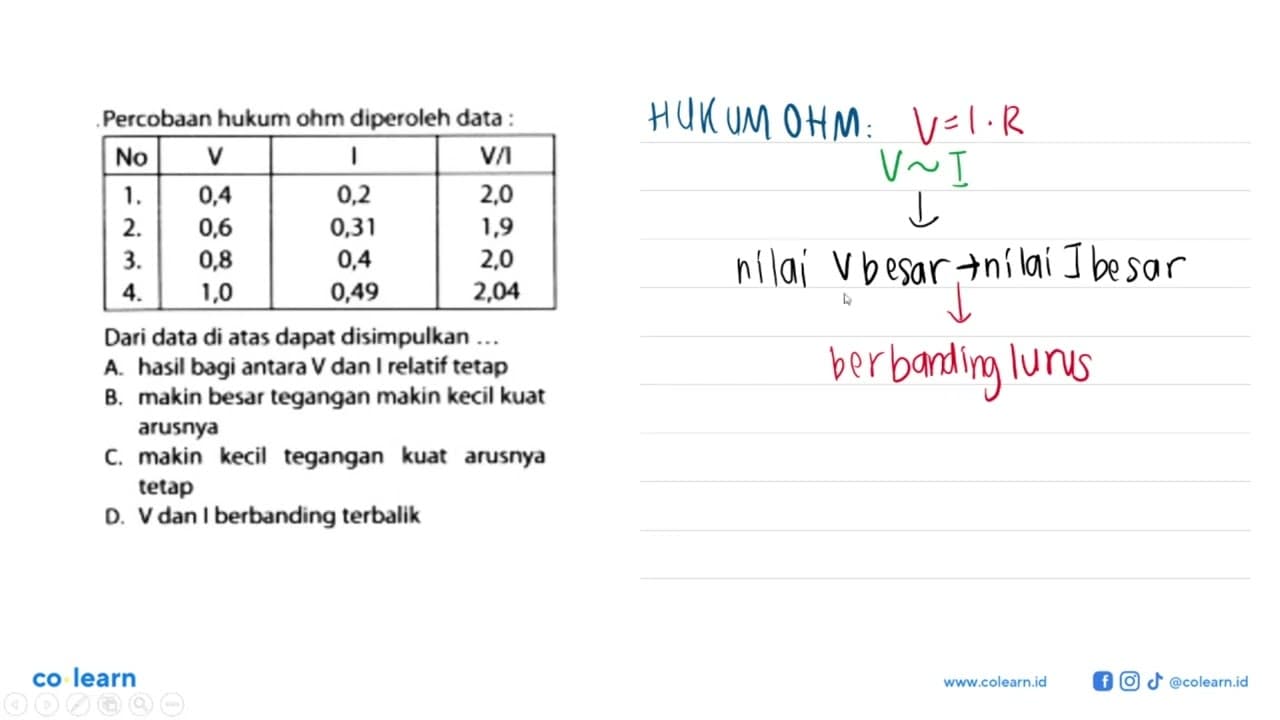 .Percobaan hukum ohm diperoleh data :
No V I V/I
1. 0,4 0,2 2,0
2. 0,6 0,31 1,9
3. 0,8 0,4 2,0
4. 1,0 0,49 2,04
Dari data di atas dapat disimpulkan ...
A. hasil bagi antara V dan I relatif tetap
B. makin besar tegangan makin kecil kuat
arusnya
C. makin kecil tegangan kuat arusnya
tetap
D. V dan I berbanding terbalik
HUKUM OHM: V=I.R
V~I
↓
nilai V besar→nilai I besar
↓
berbanding lurus
co learn
www.colearn.id
@colearn.id